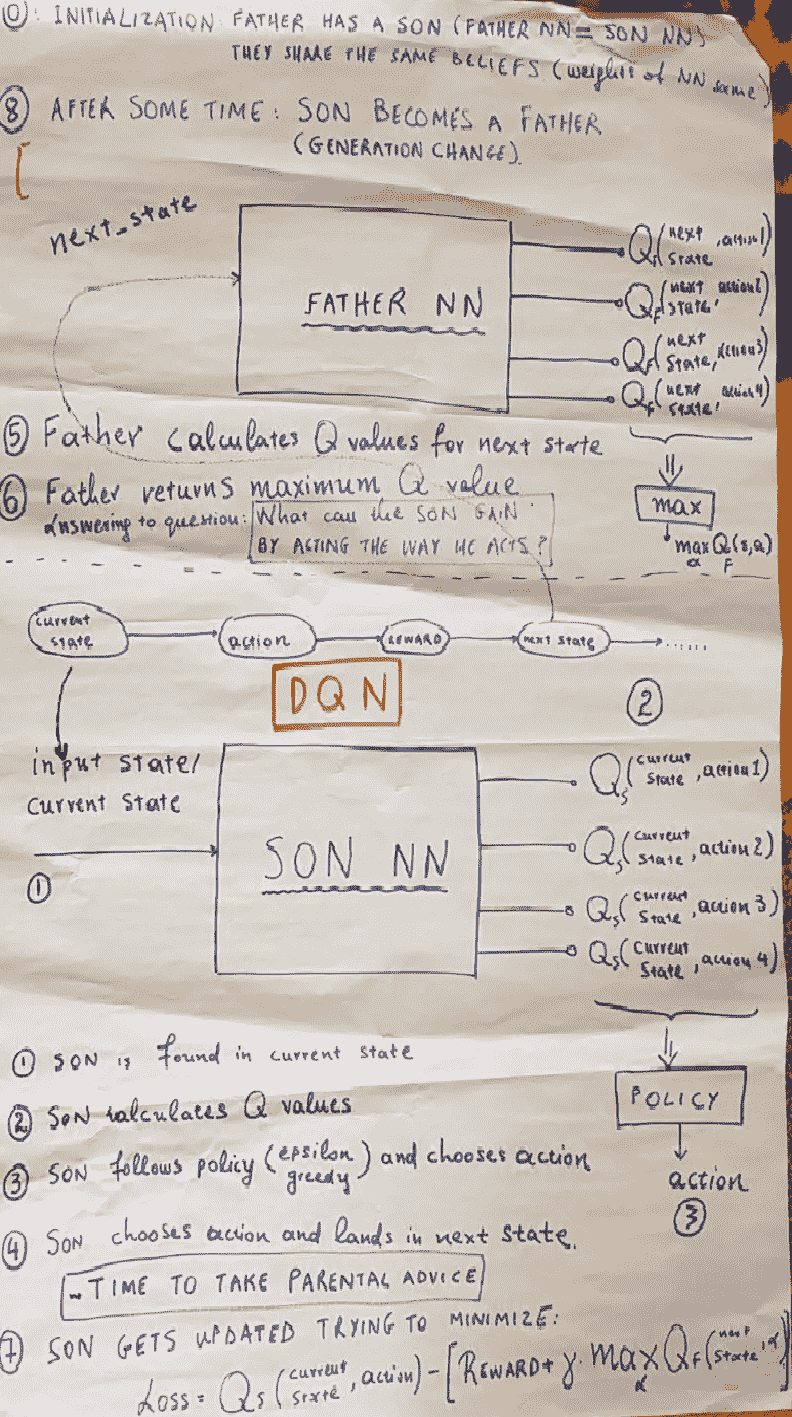 ⓪: INITIALIZATION: FATHER HAS A SON (FATHER NN = SON NN)
THEY SHARE THE SAME BELIEFS (weights of NN same)
⑧ AFTER SOME TIME: SON BECOMES A FATHER
(GENERATION CHANGE).
[
next_state
FATHER NN
Q_F(next state, action1)
Q_F(next state, action2)
Q_F(next state, action3)
Q_F(next state, action4)
⑤ Father calculates Q values for next state
⑥ Father returns maximum Q value
answering to question: What can the SON GAIN
BY ACTING THE WAY HE ACTS?
max
max_α Q_F(s,a)
current state
action
REWARD
next state
......
DQN
②
input state/
current state
①
SON NN
Q_S(current state, action1)
Q_S(current state, action2)
Q_S(current state, action 3)
Q_S(current state, action 4)
① SON is found in current state
② SON calculates Q values
③ SON follows policy (epsilon greedy) and chooses action
POLICY
action
③
④ SON chooses action and lands in next state.
~ TIME TO TAKE PARENTAL ADVICE
⑦ SON GETS UPDATED TRYING TO MINIMIZE:
Loss = Q_S(current state, action) - [REWARD + γ · max_α Q_F(next state, α)]